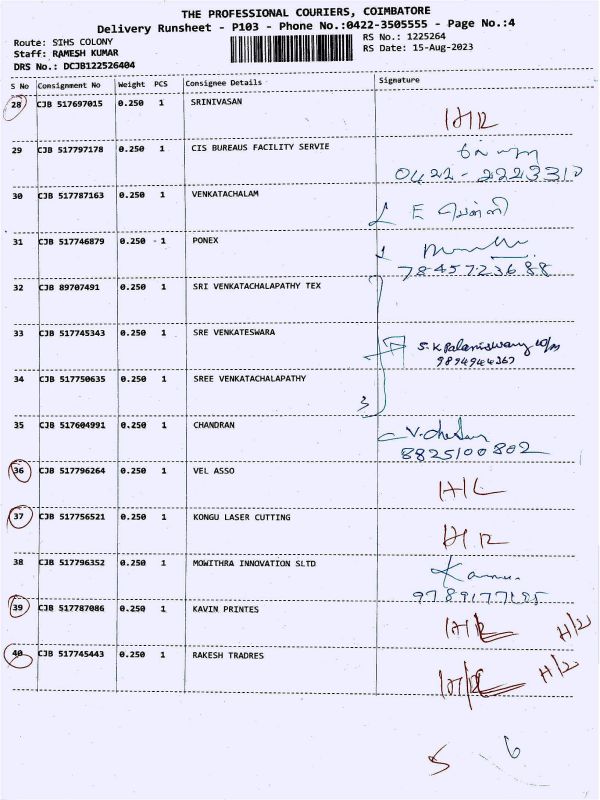 THE PROFESSIONAL COURIERS, COIMBATORE
Delivery Runsheet - P103 - Phone No.:0422-3505555 - Page No.:4
Route: SIHS COLONY
Staff: RAMESH KUMAR
DRS No.: DCJB122526404
RS No.: 1225264
RS Date: 15-Aug-2023
S No Consignment No Weight PCS Consignee Details Signature
28 CJB 517697015 0.250 1 SRINIVASAN
29 CJB 517797178 0.250 1 CIS BUREAUS FACILITY SERVIE
0422-2223310
30 CJB 517787163 0.250 1 VENKATACHALAM E
31 CJB 517746879 0.250 - 1 PONEX
7845723688
32 CJB 89707491 0.250 1 SRI VENKATACHALAPATHY TEX
33 CJB 517745343 0.250 1 SRE VENKATESWARA S.K Palaniswamy
9894944367
34 CJB 517750635 0.250 1 SREE VENKATACHALAPATHY
3
35 CJB 517604991 0.250 1 CHANDRAN
8825100802
36 CJB 517796264 0.250 1 VEL ASSO
37 CJB 517756521 0.250 1 KONGU LASER CUTTING
38 CJB 517796352 0.250 1 MOWITHRA INNOVATION SLTD
39 CJB 517787086 0.250 1 KAVIN PRINTES
40 CJB 517745443 0.250 1 RAKESH TRADRES
5 6